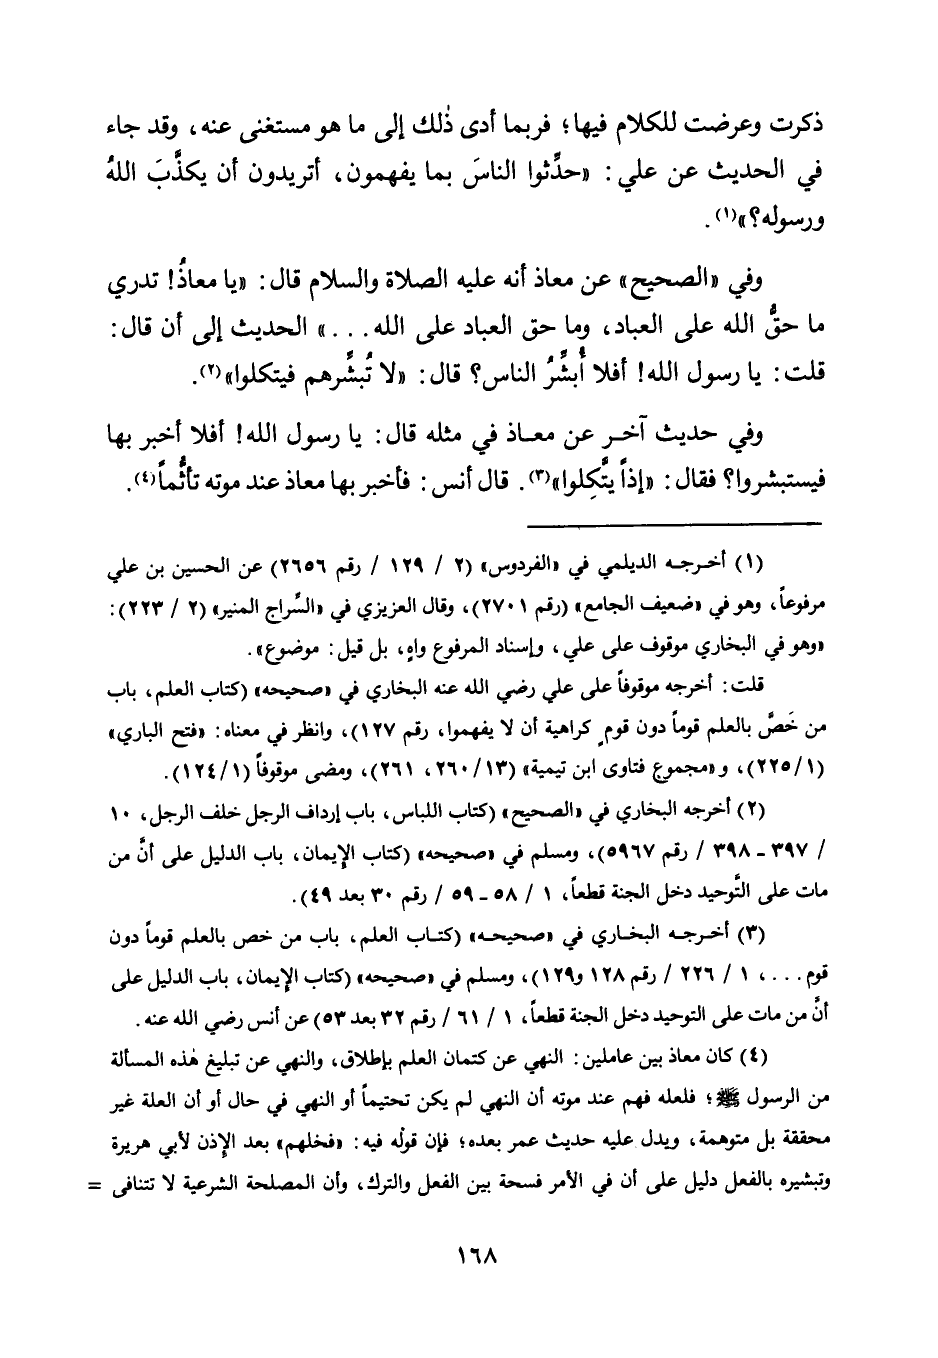 ذكرت وعرضت للكلام فيها؛ فربما أدى ذٰلك إلى ما هو مستغنى عنه، وقد جاء
في الحديث عن علي: «حدِّثوا الناسَ بما يفهمون، أتريدون أن يكذَّبَ اللهُ
ورسوله؟»(١).
وفي «الصحيح» عن معاذ أنه عليه الصلاة والسلام قال: «يا معاذُ! تدري
ما حقُّ الله على العباد، وما حق العباد على الله...» الحديث إلى أن قال:
قلت: يا رسول الله! أفلا أُبشِّرُ الناس؟ قال: «لا تُبشِّرهم فيتكلوا»(٢).
وفي حديث آخر عن معاذ في مثله قال: يا رسول الله! أفلا أخبر بها
فيستبشروا؟ فقال: «إذاً يتَّكِلوا»(٣). قال أنس: فأخبر بها معاذ عند موته تأثُّماً(٤).
(١) أخرجه الديلمي في «الفردوس» (٢ / ١٢٩ / رقم ٢٦٥٦) عن الحسين بن علي
مرفوعاً، وهو في «ضعيف الجامع» (رقم ٢٧٠١)، وقال العزيزي في «السِّراج المنير» (٢ / ٢٢٣):
«وهو في البخاري موقوف على علي، وإسناد المرفوع واهٍ، بل قيل: موضوع».
قلت: أخرجه موقوفاً على علي رضي الله عنه البخاري في «صحيحه» (كتاب العلم، باب
من خَصَّ بالعلم قوماً دون قومٍ كراهية أن لا يفهموا، رقم ١٢٧)، وانظر في معناه: «فتح الباري»
(١/ ٢٢٥)، و«مجموع فتاوى ابن تيمية» (١٣/ ٢٦٠، ٢٦١)، ومضى موقوفاً (١/ ١٢٤).
(٢) أخرجه البخاري في «الصحيح» (كتاب اللباس، باب إرداف الرجل خلف الرجل، ١٠
/ ٣٩٧ ـ ٣٩٨ / رقم ٥٩٦٧)، ومسلم في «صحيحه» (كتاب الإيمان، باب الدليل على أنَّ من
مات على التَّوحيد دخل الجنة قطعاً، ١ / ٥٨ ـ ٥٩ / رقم ٣٠ بعد ٤٩).
(٣) أخرجه البخاري في «صحيحه» (كتاب العلم، باب من خص بالعلم قوماً دون
قوم...، ١ / ٢٢٦ / رقم ١٢٨ و١٢٩)، ومسلم في «صحيحه» (كتاب الإيمان، باب الدليل على
أنَّ من مات على التوحيد دخل الجنة قطعاً، ١ / ٦١ / رقم ٣٢ بعد ٥٣) عن أنس رضي الله عنه.
(٤) كان معاذ بين عاملين: النهي عن كتمان العلم بإطلاق، والنهي عن تبليغ هٰذه المسألة
من الرسول ﷺ؛ فلعله فهم عند موته أن النهي لم يكن تحتيماً أو النهي في حال أو أن العلة غير
محققة بل متوهمة، ويدل عليه حديث عمر بعده؛ فإن قولْه فيه: «فخلهم» بعد الإذن لأبي هريرة
وتبشيره بالفعل دليل على أن في الأمر فسحة بين الفعل والترك، وأن المصلحة الشرعية لا تتنافى =
١٦٨